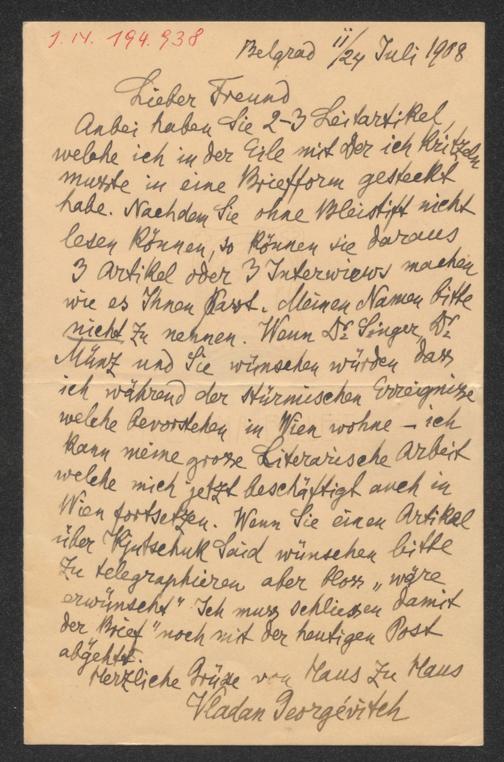 J.N. 194.938
Belgrad 11/24 Juli 1908
Lieber Freund
Anbei haben Sie 2-3 Leitartikel,
welche ich in der Eile mit der ich kritzeln
musste in eine Briefform gesteckt
habe. Nachdem Sie ohne Bleistift nicht
lesen können, so können sie daraus
3 Artikel oder 3 Interwiews machen
wie es Ihnen passt. Meinen Namen bitte
nicht zu nennen. Wenn Dr. Singer, Dr.
Münz und Sie wünschen würden dass
ich während der stürmischen Ereignisse
welche bevorstehen in Wien wohne – ich
kann meine grosse Literarische Arbeit
welche mich jetzt beschäftigt auch in
Wien fortsetzen. Wenn Sie einen Artikel
über Kjutschuk Said wünschen bitte
zu telegraphieren aber blos „wäre
erwünscht" Ich muss schliessen damit
der Brief noch mit der heutigen Post
abgeht.
Herzliche Grüsse von Haus zu Haus
Vladan Georgévitch